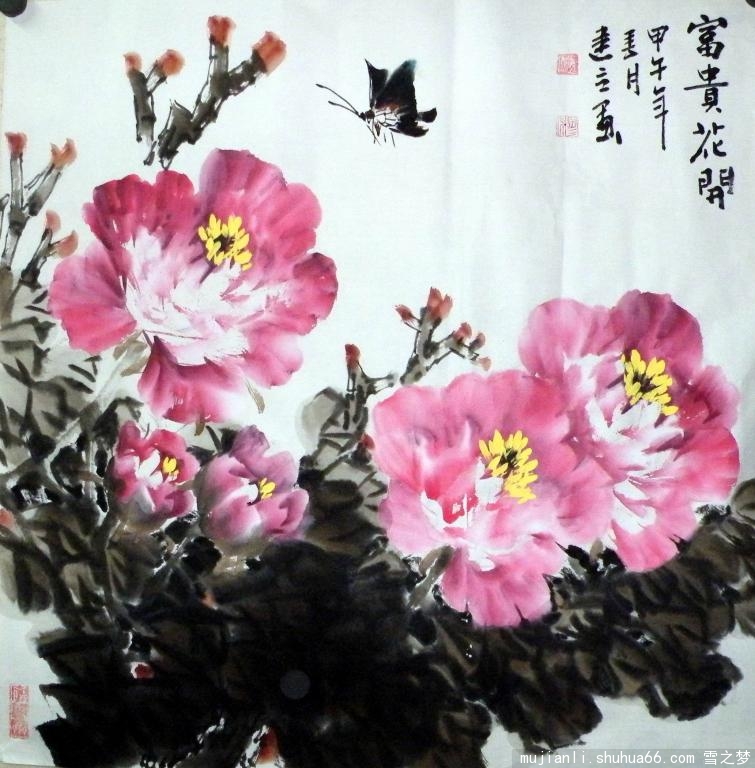 富貴花開
甲午年
春月
建立画
mujianli.shuhua66.com 雪之梦